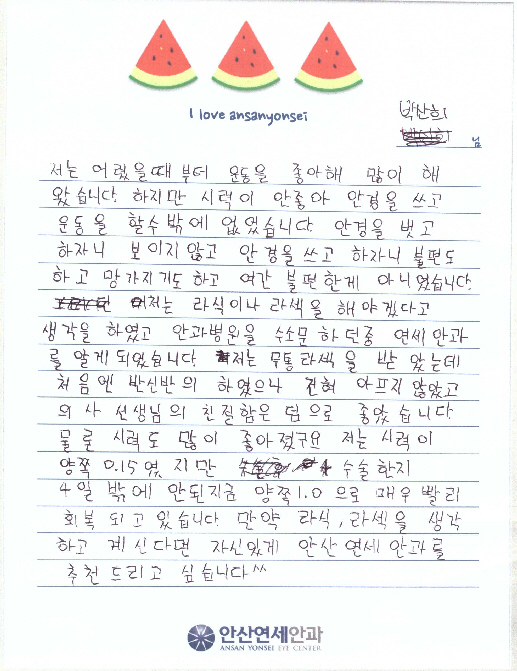 I love ansanyonsei
박산희
님
저는 어렸을때부터 운동을 좋아해 많이 해
왔습니다. 하지만 시력이 안좋아 안경을 쓰고
운동을 할수밖에 없었습니다. 안경을 벗고
하자니 보이지않고 안경을 쓰고 하자니 불편도
하고 망가지기도 하고 여간 불편한게 아니였습니다.
저는 라식이나 라섹을 해야겠다고
생각을 하였고 안과병원을 수소문 하던중 연세안과
를 알게되었습니다. 저는 무통라섹을 받았는데
처음엔 반신반의 하였으나 전혀 아프지 않았고
의사 선생님의 친절함은 덤으로 좋았습니다
물론 시력도 많이 좋아졌구요 저는 시력이
양쪽 0.15였지만 수술한지
4일 밖에 안된지금 양쪽1.0 으로 매우 빨리
회복 되고 있습니다. 만약 라식, 라섹을 생각
하고 계신다면 자신있게 안산연세안과를
추천드리고 싶습니다^^
안산연세안과
ANSAN YONSEI EYE CENTER